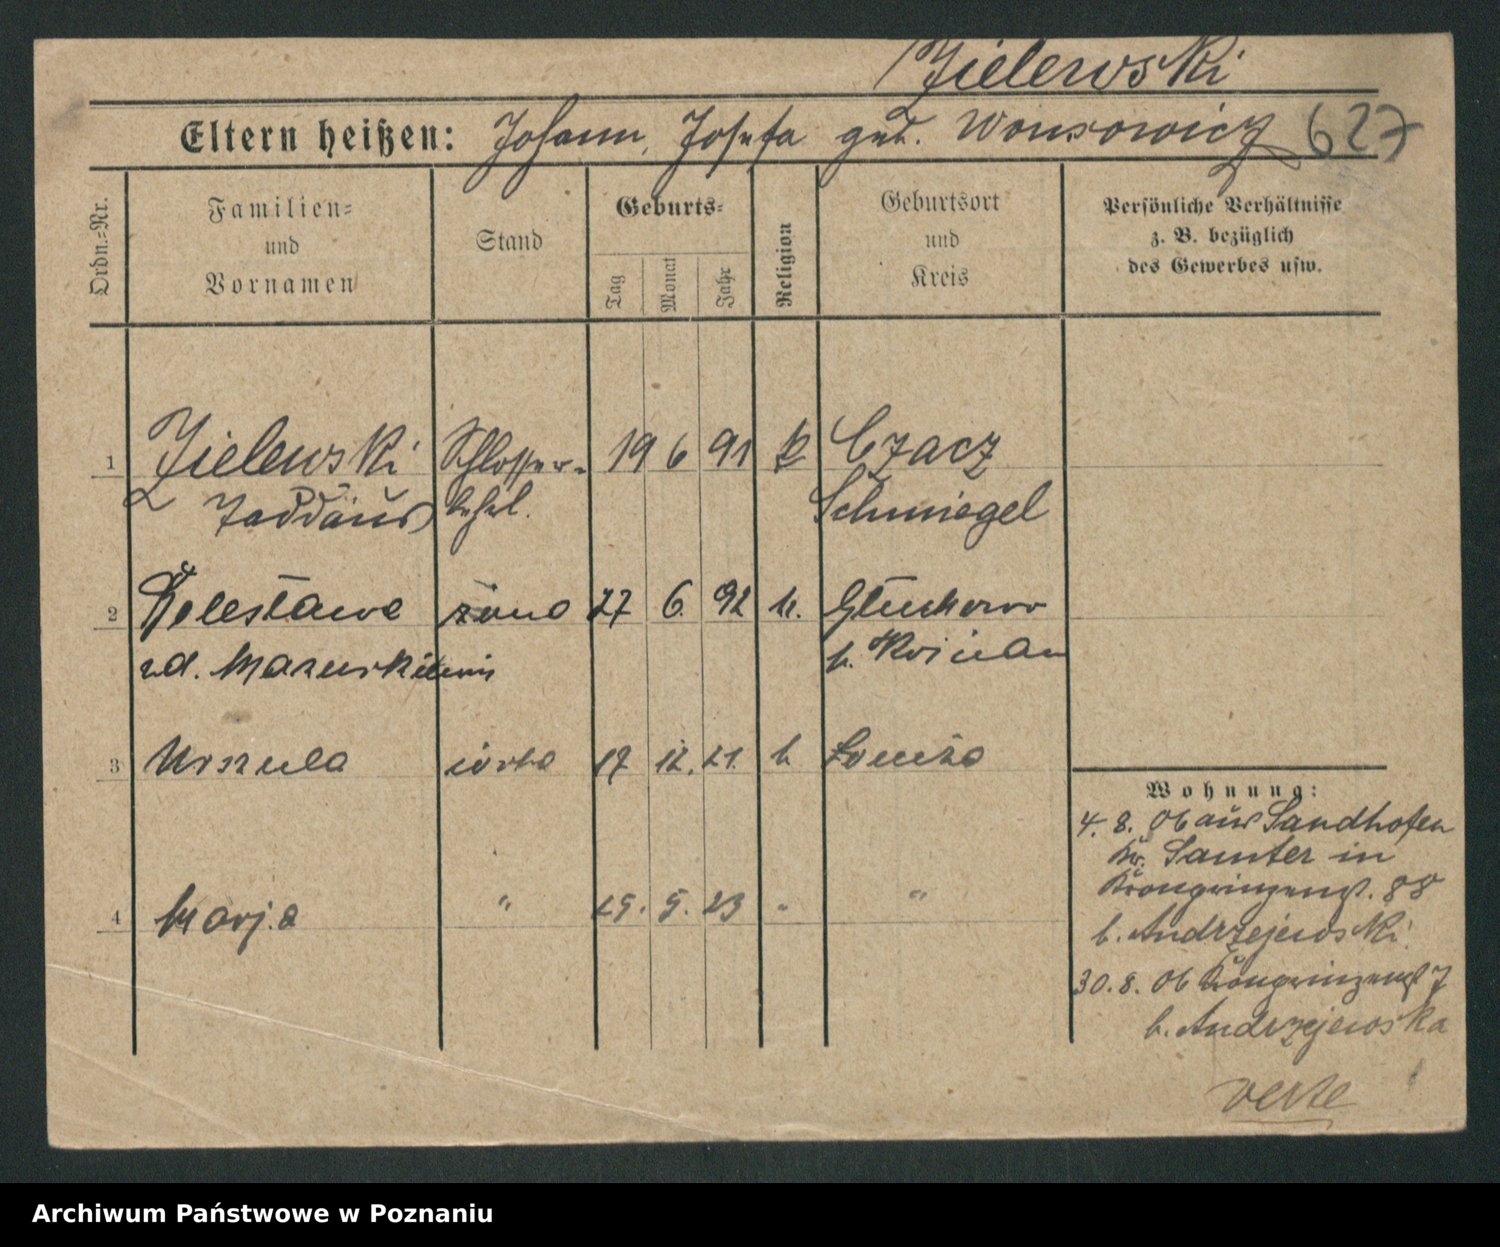 Zielewski
Eltern heißen: Johann, Josefa geb. Wonsowicz 627
Ordn.-Nr.
Familien-
und
Vornamen
Stand
Geburts-
Tag
Monat
Jahr
Religion
Geburtsort
und
Kreis
Persönliche Verhältnisse
z. B. bezüglich
des Gewerbes usw.
1 Zielewski Schlosser- 19 6 91 k Czacz
Taddäus Schmiegel
2 Celestawa żona 27 6. 92 k. Głuchowo
zd. k. Kościan
3 Urszula córka 17 12. 21. k Łomża
4 Marja " 25. 5. 23 " "
Wohnung:
4. 8. 06 aus Sandhofen
Kr. Samter in
Kronprinzenst. 88
b. Andrzejewski
30. 8. 06 Kronprinzenst 7
b. Andrzejewska
verte
Archiwum Państwowe w Poznaniu